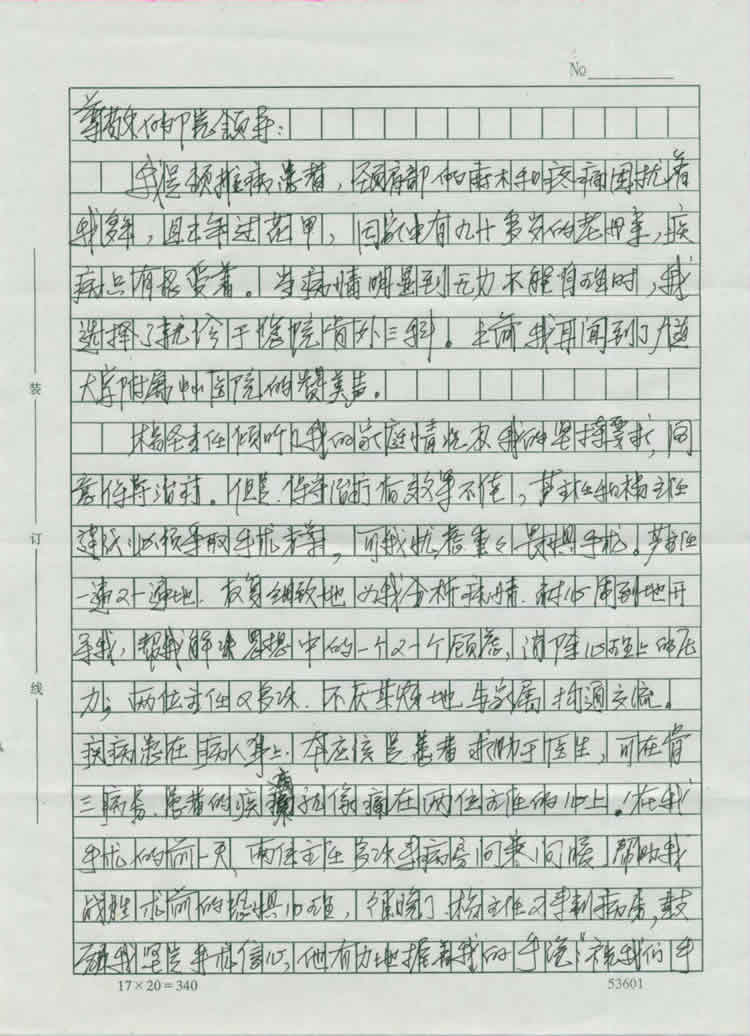 No
尊敬的院领导：
我是颈椎病患者，颈肩部的麻木和疼痛困扰着
我多年，且本年过花甲，因家中有九十多岁的老母亲，疾
病只有忍受着。当病情明显到无力不能自理时，我
选择了就诊于医院骨外三科。之前我耳闻到了
大学附属中山医院的赞美声。
杨主任倾听了我的家庭情况及我的坚持要求，同
意保守治疗。但是，保守治疗有效果不佳，主任和杨主任
建议必须采取手术方案，可我忧虑重重畏惧手术。主任
一遍又一遍地、反复细致地为我分析病情、耐心周到地开
导我，帮我解决思想中的一个又一个顾虑，消除心理上的压
力；两位主任又多次、不厌其烦地与家属沟通交流。
疾病患在病人身上，本应该是患者求助于医生，可在骨
三病房、患者的疾痛就像痛在两位主任的心上！在我
手术的前一天，两位主任多次来病房问寒问暖、帮助我
战胜术前的恐惧心理，很晚了，杨主任又来到病房，鼓
励我坚定手术信心，他有力地握着我的手说："祝我们手
装
订
线
17×20=340
53601